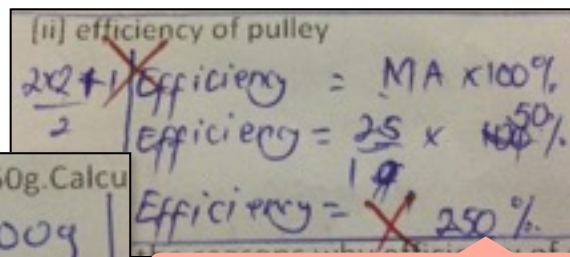 [ii] efficiency of pulley
2x2+1
2
Efficiency = MA x100%
Efficiency = 25 x 50%
1
Efficiency = 250%.
50g.Calcu
00g